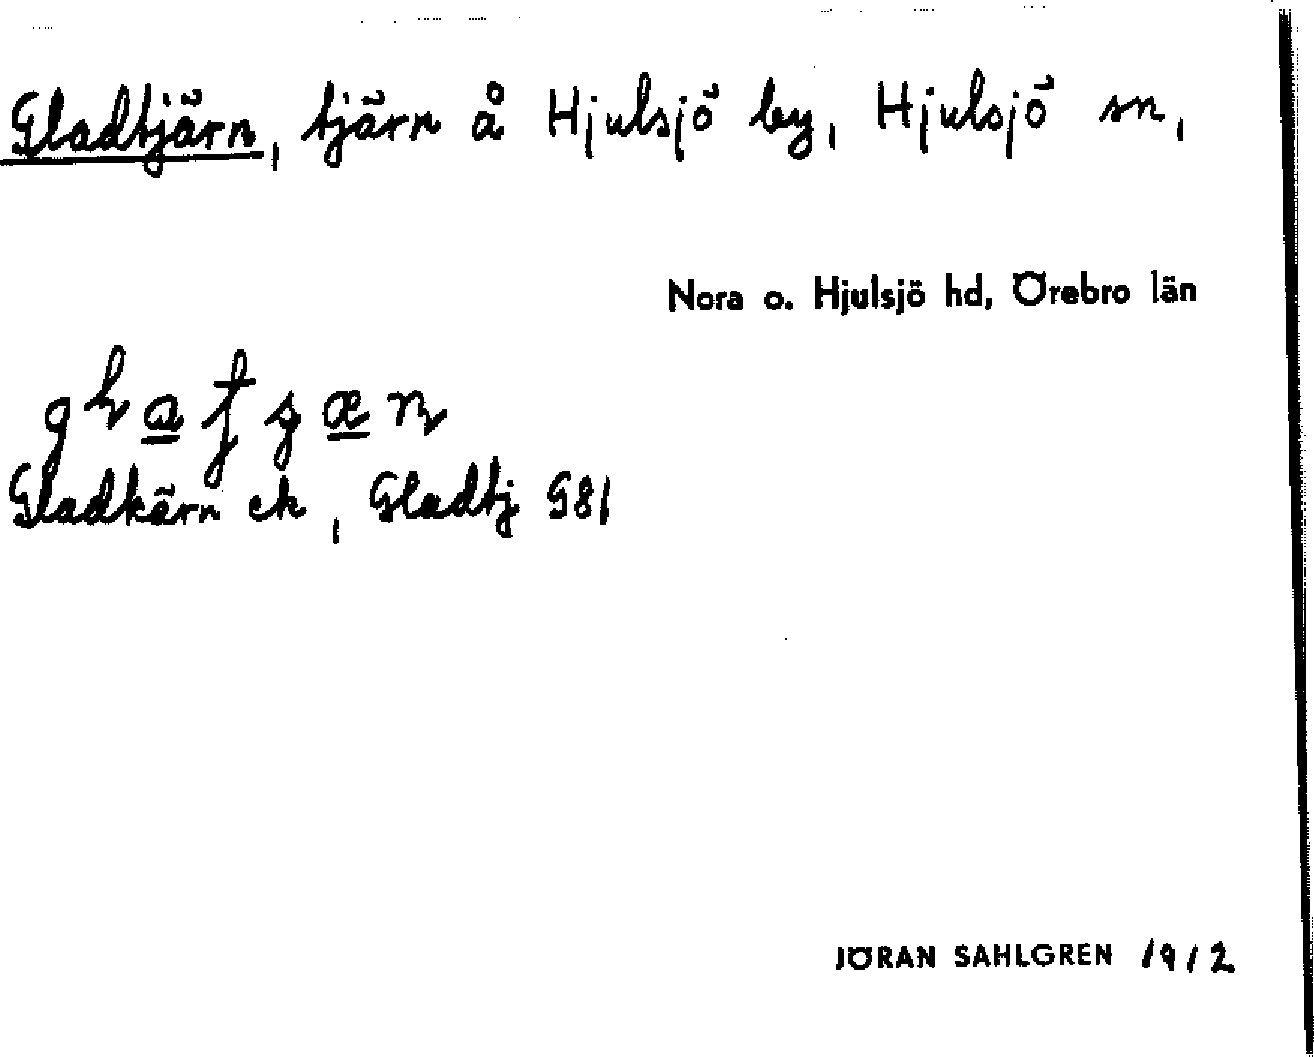 Gladtjärn, tjärn å Hjulsjö by, Hjulsjö sn,
Nora o. Hjulsjö hd, Örebro län
Gladkärn ek, Gladtj G81
JÖRAN SAHLGREN 1912